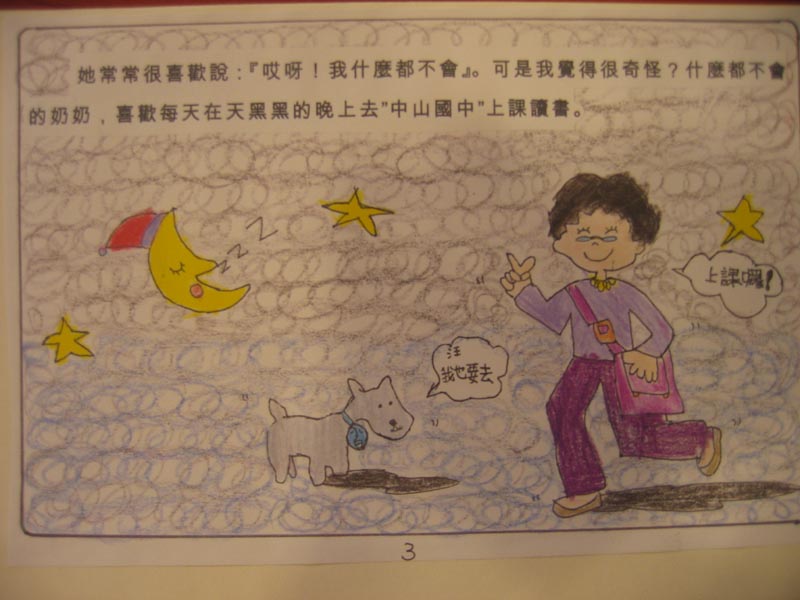 她常常很喜歡說：『哎呀！我什麼都不會』。可是我覺得很奇怪？什麼都不會
的奶奶，喜歡每天在天黑黑的晚上去”中山國中”上課讀書。
zzz
上課囉！
汪
我也要去
3